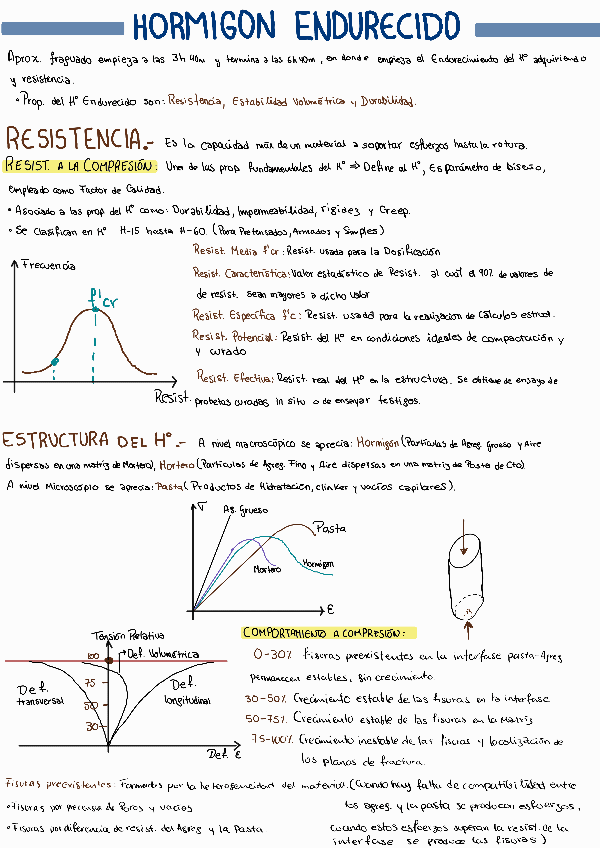 HORMIGON ENDURECIDO
Aprox. fraguado empieza a las 3h 40m y termina a las 6h 40m, en donde empieza el Endurecimiento del H° adquiriendo
y resistencia.
• Prop. del H° Endurecido son: Resistencia, Estabilidad Volumétrica y Durabilidad.
RESISTENCIA.- Es la capacidad máx de un material a soportar esfuerzos hasta la rotura.
RESIST. A LA COMPRESIÓN: Una de las prop fundamentales del H° ⇒ Define al H°, Es parámetro de diseño,
empleado como Factor de Calidad.
• Asociado a las prop del H° como: Durabilidad, Impermeabilidad, rigidez y Creep.
• Se clasifican en H° H-15 hasta H-60. (Para Pretensados, Armados y Simples)
Resist. Media f'cr: Resist. usada para la Dosificación
Resist. Característica: Valor estadístico de Resist. al cuál el 90% de valores de
de resist. sean mayores a dicho valor
Resist. Específica f'c: Resist. usada para la realización de Cálculos estruct.
Resist. Potencial: Resist. del H° en condiciones ideales de compactación y
y curado
Resist. Efectiva: Resist. real del H° en la estructura. Se obtiene de ensayo de
probetas curadas in situ o de ensayar testigos.
Frecuencia
f'cr
Resist.
ESTRUCTURA DEL H°.- A nivel macroscópico se aprecia: Hormigón (Partículas de Agreg. Grueso y Aire
dispersas en una matriz de Mortero), Mortero (Partículas de Agreg. Fino y Aire dispersas en una matriz de Pasta de Cto)
A nivel Microscópio se aprecia: Pasta (Productos de Hidratación, clinker y vacíos capilares).
σ
Ag. Grueso
Pasta
Hormigón
Mortero
ε
Tensión Relativa
100
Def. Volumétrica
75
50
30
Def.
transversal
Def.
longitudinal
Def. ε
COMPORTAMIENTO A COMPRESIÓN:
0-30% Fisuras preexistentes en la interfase pasta-Agreg
permanecen estables, sin crecimiento
30-50% Crecimiento estable de las fisuras en la interfase
50-75% Crecimiento estable de las fisuras en la Matriz
75-100% Crecimiento inestable de las fisuras y localización de
los planos de fractura.
Fisuras preexistentes: Formadas por la heterogeneidad del material. (Cuando hay falta de compatibilidad entre
• Fisuras por presencia de Poros y vacíos
los agreg. y la pasta se producen esfuerzos,
• Fisuras por diferencia de resist. del Agreg y la Pasta
cuando estos esfuerzos superan la resist. de la
interfase se produce las fisuras)